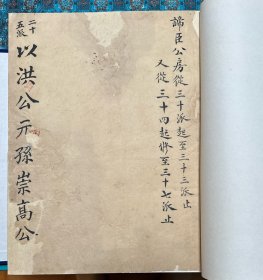 諦臣公房從三十派起至三十三派止
又從三十四起修至三十七派止
二十五派
以洪公元孫崇高公